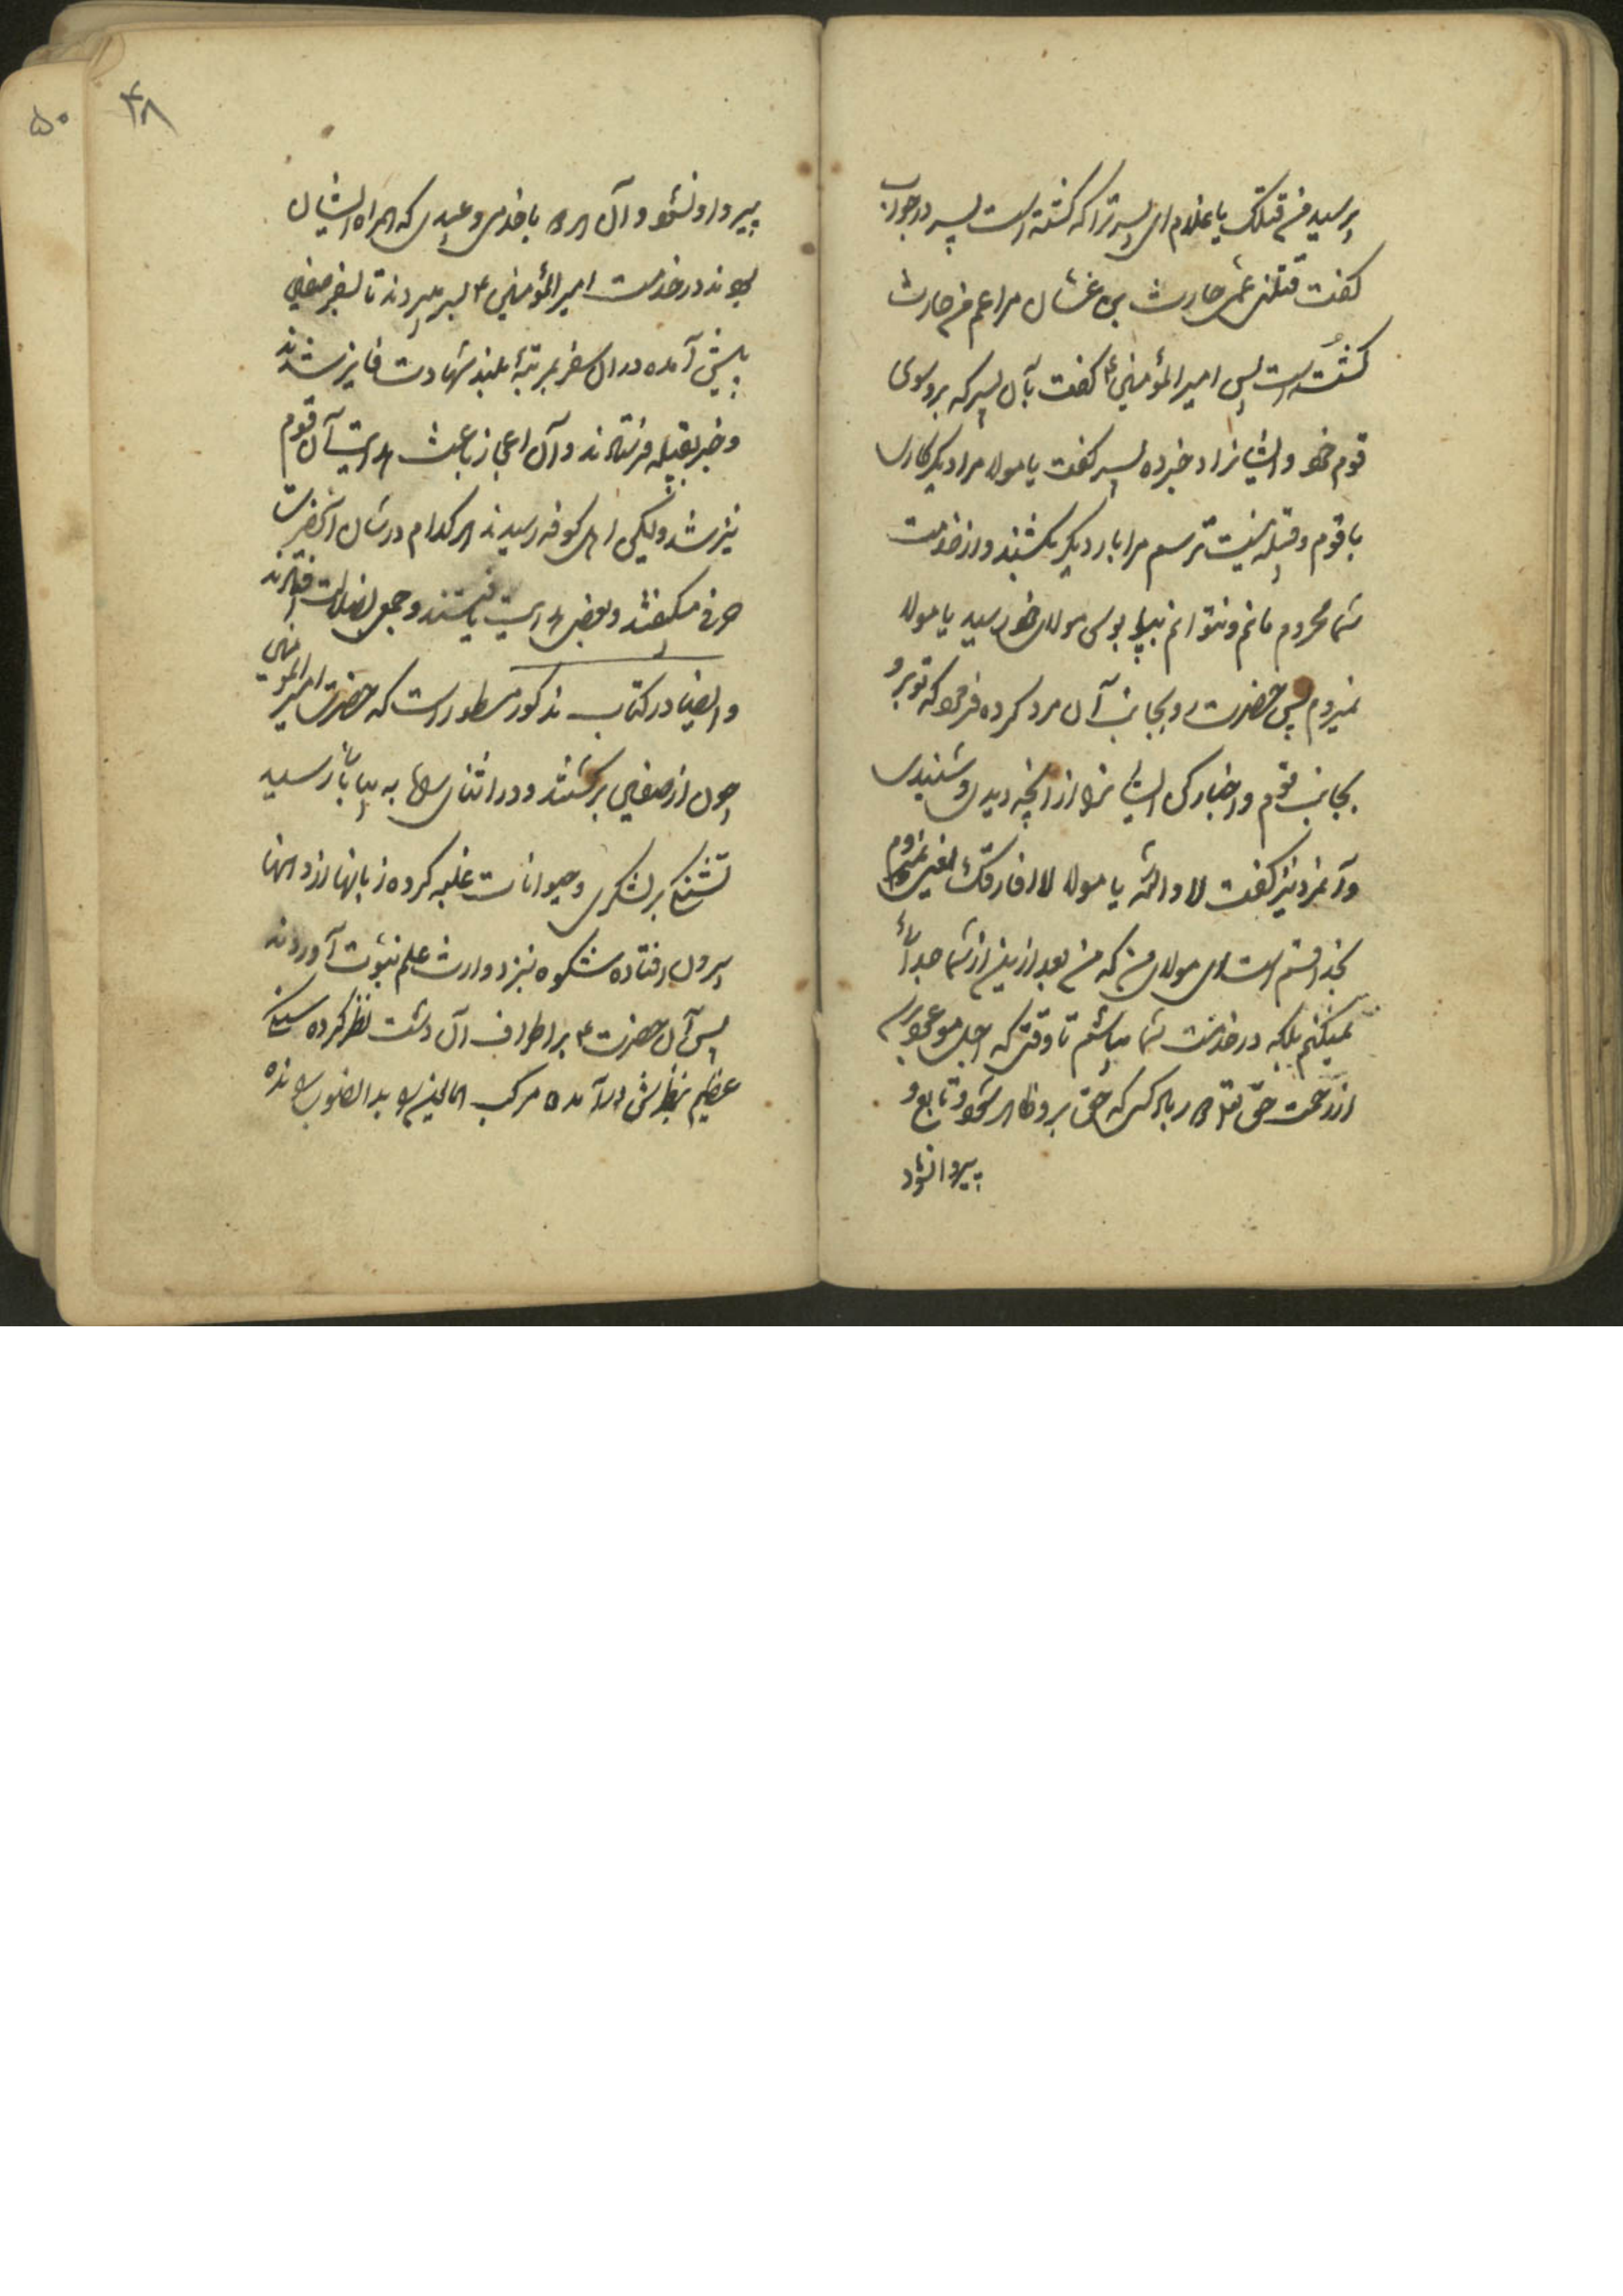 پرسید من قتلک یا غلام ای پسر ترا که کشته است پسر در جواب
کفت قتلنی عمی حارث بن غسان مرا عم من حارث
کشته است پس امیرالمؤمنین ع کفت بآن پسر که برو سوی
قوم خود و ایشانرا خبر ده پسر کفت یا مولا مرا دیگر کاری
با قوم و قبیله نیست ترسم مرا بار دیگر بکشند و از خدمت
شما محروم مانم و نتوانم بپا بوس مولای خود رسید یا مولا
نمیروم پس حضرت رو بجانب آن مرد کرده فرمود که تو برو
بجانب قوم و اخبار کن ایشانرا از آنچه دیدی و شنیدی
و آنمرد نیز کفت لا والله یا مولا لا افارقک نمیروم
بخدا قسم است ای مولای من که من بعد ازین از شما جدائی
نمیکنم بلکه در خدمت شما میباشم تا وقتی که اجل موعود برسم
از رحمت حق تعالی بر کسی که حق برو ظاهر شود و تابع و
پیرو او نشود
۴۸
۵۰
پیرو او نشود و آن هر دو با خدمی و عبیدی که همراه ایشان
بودند در خدمت امیرالمؤمنین ع بسر میبردند تا سفر صفین
پیش آمده در آن سفر بمرتبهٔ بلند شهادت فایز شدند
و خبر بقبیله فرستادند و آن اعجاز باعث هدایت آن قوم
نیز شد ولیکن اهل کوفه رسیدند هر کدام در شان آنحضرت
حرفی میگفتند و بعضی هدایت یافتند و جمعی بضلالت افتادند
و ایضا در کتاب مذکور مسطور است که حضرت امیرالمؤمنین
چون از صفین برگشتند و در اثنای راه به بیابانی رسید
تشنگی بر لشکری و حیوانات غلبه کرده زبانها از دهانها
بیرون افتاده شکوه بنزد وارث علم نبوت آوردند
پس آن حضرت ع بر اطراف آن دشت نظر کرده سنگی
عظیم بنظرش درآمده مرکب را بدانصوب رانده